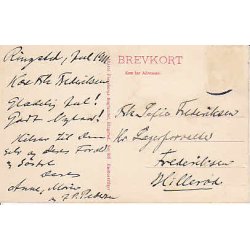 Ringsted, Jul 1911
Kære Frk Frederiksen
Glædelig Jul!
Godt Nytaar!
Hilsen til dem
selv og deres Foræld
og Søster
Deres
Anne, Marie
og J. P. Pedersen
BREVKORT
Kun for Adressen.
Frk Sofie Frederiksen
Hr Lagerforvalter
Frederiksen
Hillerød